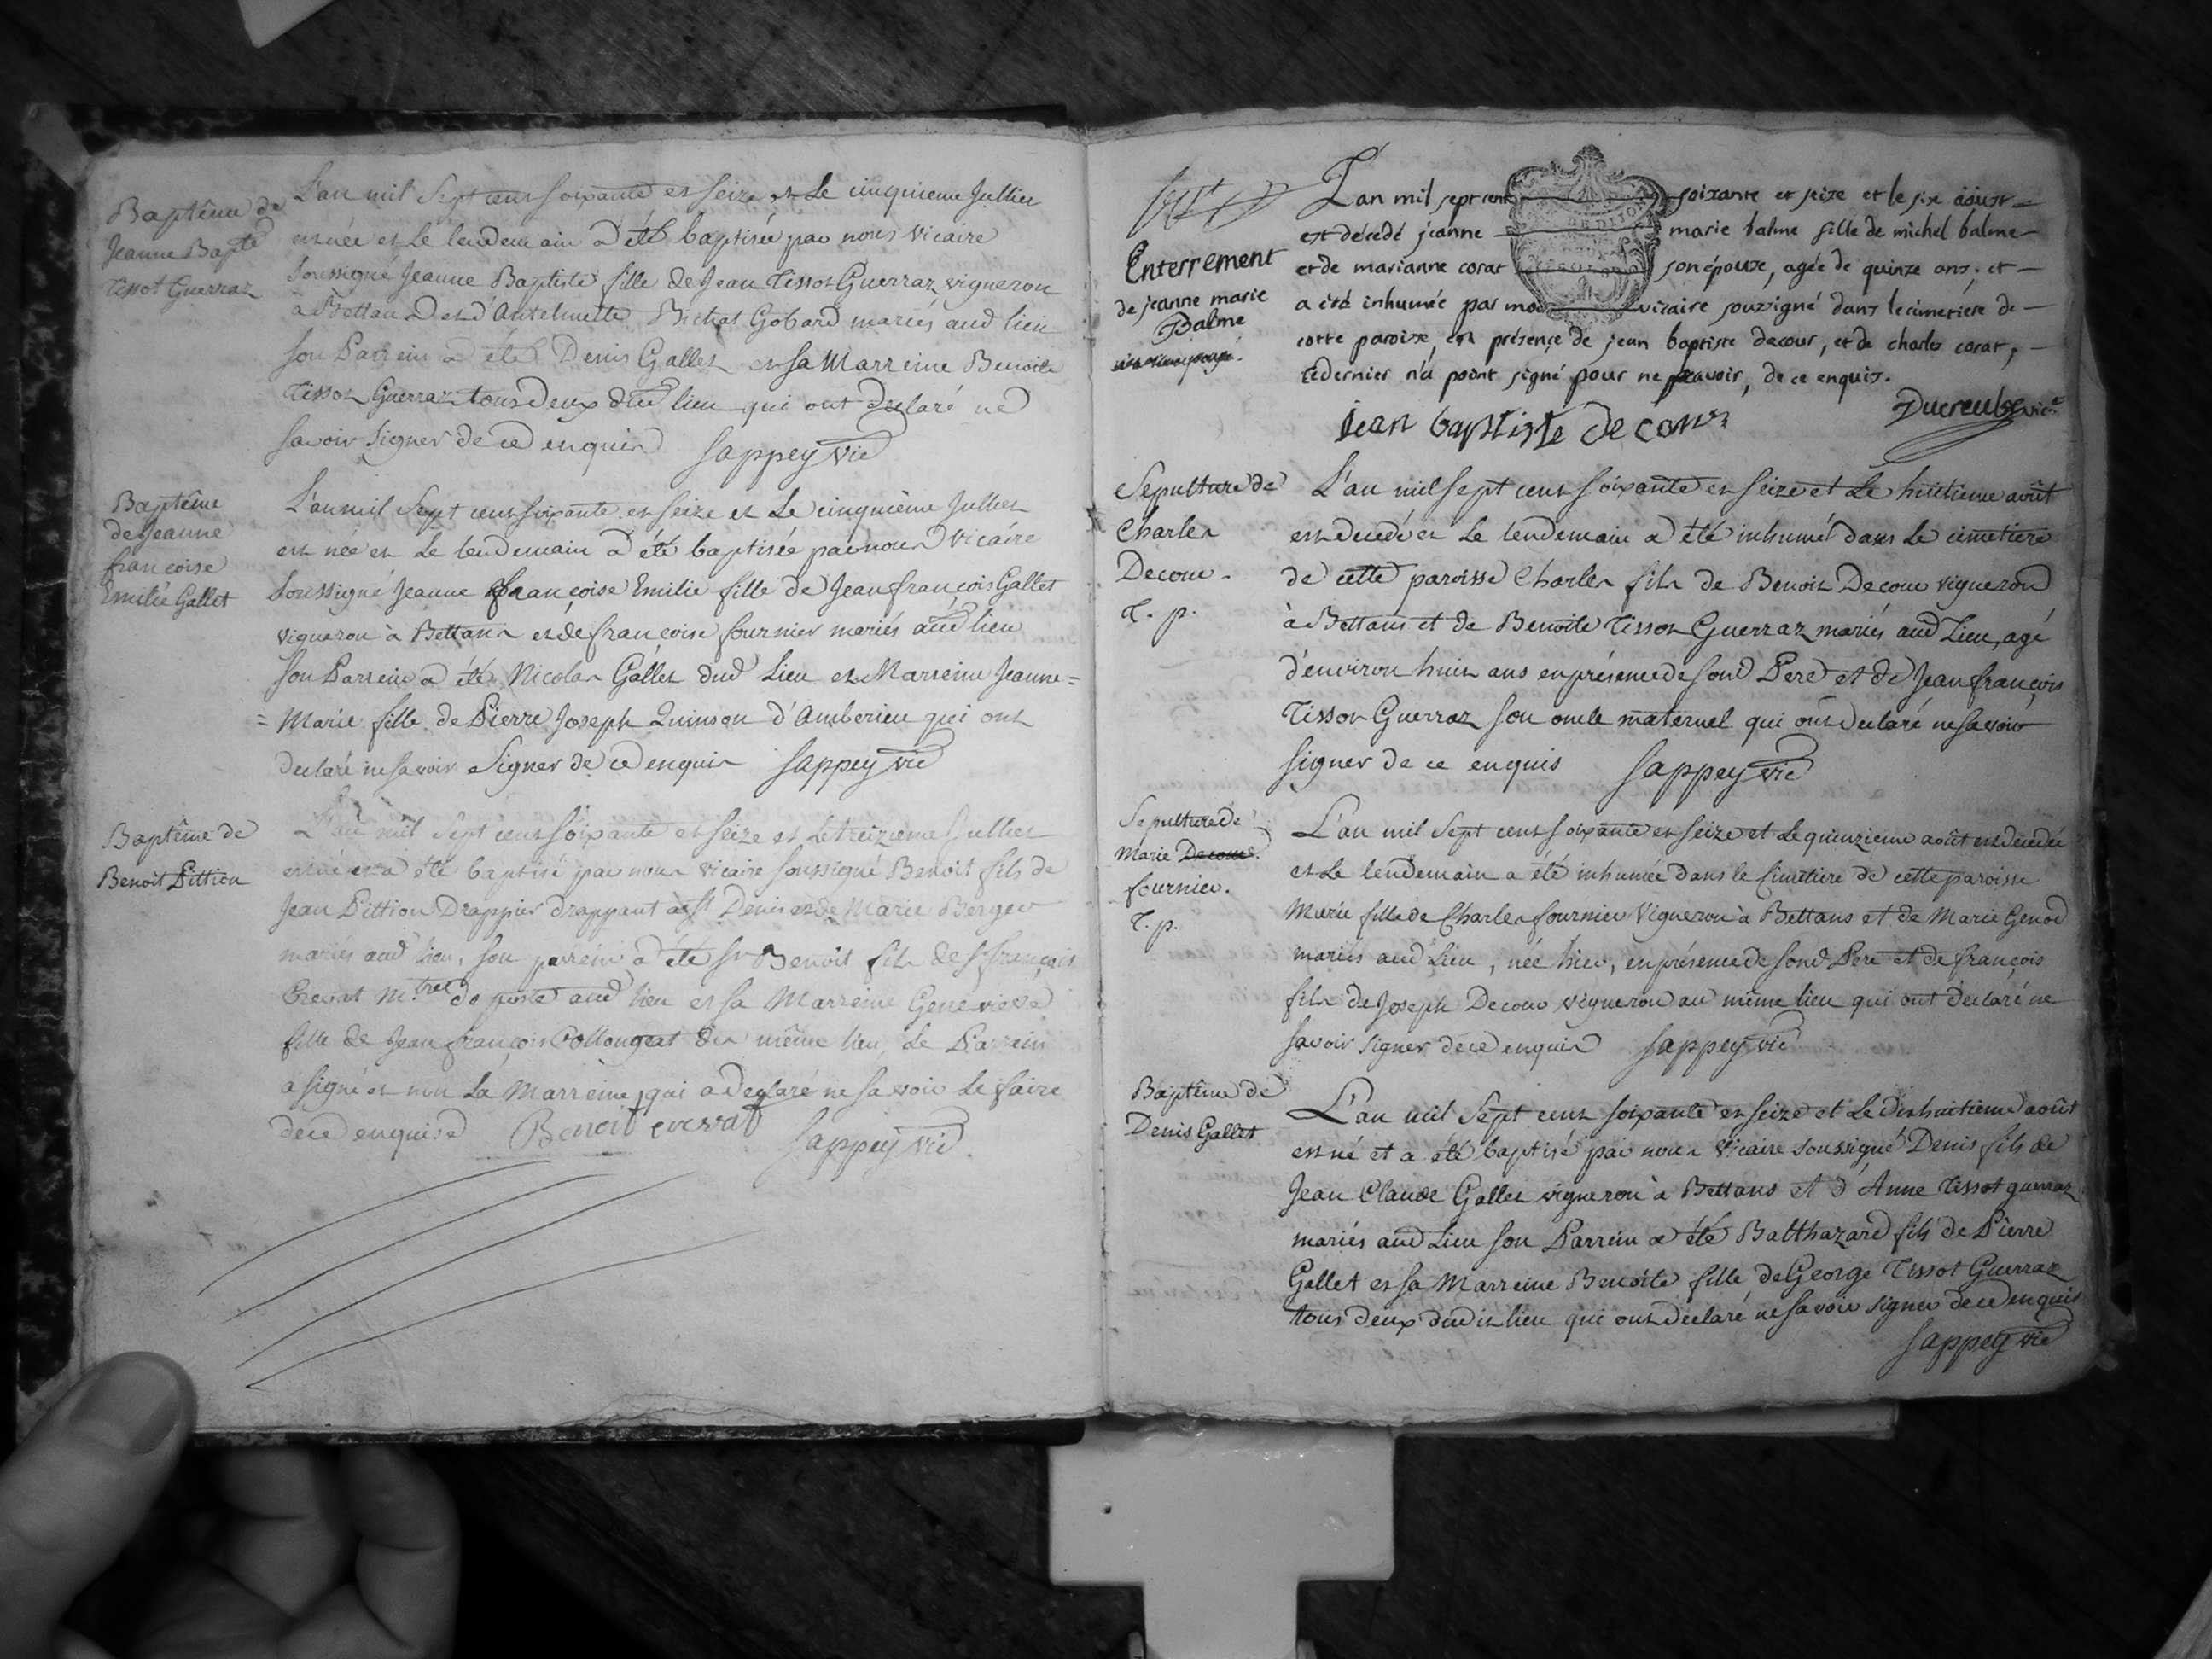 Baptême de
Jeanne Bapte
Tissot Guerraz
L'an mil Sept cent soixante et seize et Le cinquieme Jullier
est née et Le lendemain a été baptisée par nous vicaire
soussigné Jeanne Baptiste fille de Jean Tissot Guerraz vigneron
à Bettans et d'Antelmette Bichat Gobard mariés aud lieu
son Parrein a été Denis Gallet et sa Marreine Benoite
Tissot Guerraz tous deux dud lieu qui ont declaré ne
savoir signer de ce enquis Sappey vic
Baptême
de Jeanne
françoise
Emilie Gallet
L'an mil Sept cent soixante et seize et Le cinquième Jullier
est née et Le lendemain a été baptisée par nous vicaire
soussigné Jeanne françoise Emilie fille de Jean françois Gallet
vigneron à Bettans et de françoise fournier mariés aud lieu
son Parrein a été Nicolas Gallet dud Lieu et Marreine Jeanne=
= Marie fille de Pierre Joseph Quinson d'Amberieu qui ont
declaré ne savoir signer de ce enquis Sappey vic
Baptême de
Benoit Pittion
L'an mil Sept cent soixante et seize et Le treizieme Jullier
est né et a été baptisé par nous vicaire soussigné Benoit fils de
Jean Pittion Drappier drappant a St Denis et de Marie Berger
mariés aud lieu, son parrein a été sr Benoit fils de sr françois
Crevat M.tre de poste aud lieu et sa Marreine Genevieve
fille de Jean françois Collongeat du même lieu, Le Parrein
a signé et non La Marreine, qui a declaré ne savoir Le faire
de ce enquise Benoit crevat Sappey vic
Enterrement
de jeanne marie
Balme
L'an mil sept cent soixante et seize et le six aoust
est décédé jeanne marie balme fille de michel balme
et de marianne corat son épouze, agée de quinze ans, et
a été inhumée par moi vicaire souzsigné dans le cimetiere de
cette paroisse, en présence de jean baptiste dacour, et de charles corat,
ce dernier n'a point signé pour ne sçavoir, de ce enquis.
jean baptiste de cour Ducreubz vice
Sepulture de
Charles
Decour.
T. p.
L'an mil sept cent soixante et seize et Le huitieme août
est decedé et Le lendemain a été inhumé dans Le cimetiere
de cette paroisse Charles fils de Benoit Decour vigneron
à Bettans et de Benoite Tissot Guerraz mariés aud Lieu, agé
d'environ huit ans en présence de sond Pere et de Jean françois
Tissot Guerraz son oncle maternel qui ont declaré ne savoir
signer de ce enquis Sappey vic
Sepulture de
Marie Decour.
fournier.
T. p.
L'an mil Sept cent soixante et seize et Le quinzieme août est decedée
et Le lendemain a été inhumée dans le Cimetiere de cette paroisse
Marie fille de Charles fournier Vigneron à Bettans et de Marie Genod
mariés aud Lieu, née hier, en présence de sond Pere et de françois
fils de Joseph Decour vigneron au même lieu qui ont declaré ne
savoir signer de ce enquis Sappey vic
Baptême de
Denis Gallet
L'an mil Sept cent soixante et seize et Le dixhuitieme août
est né et a été baptisé par nous vicaire soussigné Denis fils de
Jean Claude Gallet vigneron à Bettans et d'Anne Tissot guerraz
mariés aud Lieu son Parrein a été Balthazard fils de Pierre
Gallet et sa Marreine Benoite fille de George Tissot Guerraz
tous deux dudit lieu qui ont declaré ne savoir signer de ce enquis
Sappey vic